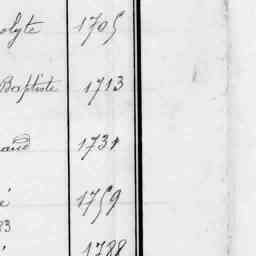 olyte 1705
Baptiste 1713
aud 1731
é 1759
83
é 1788